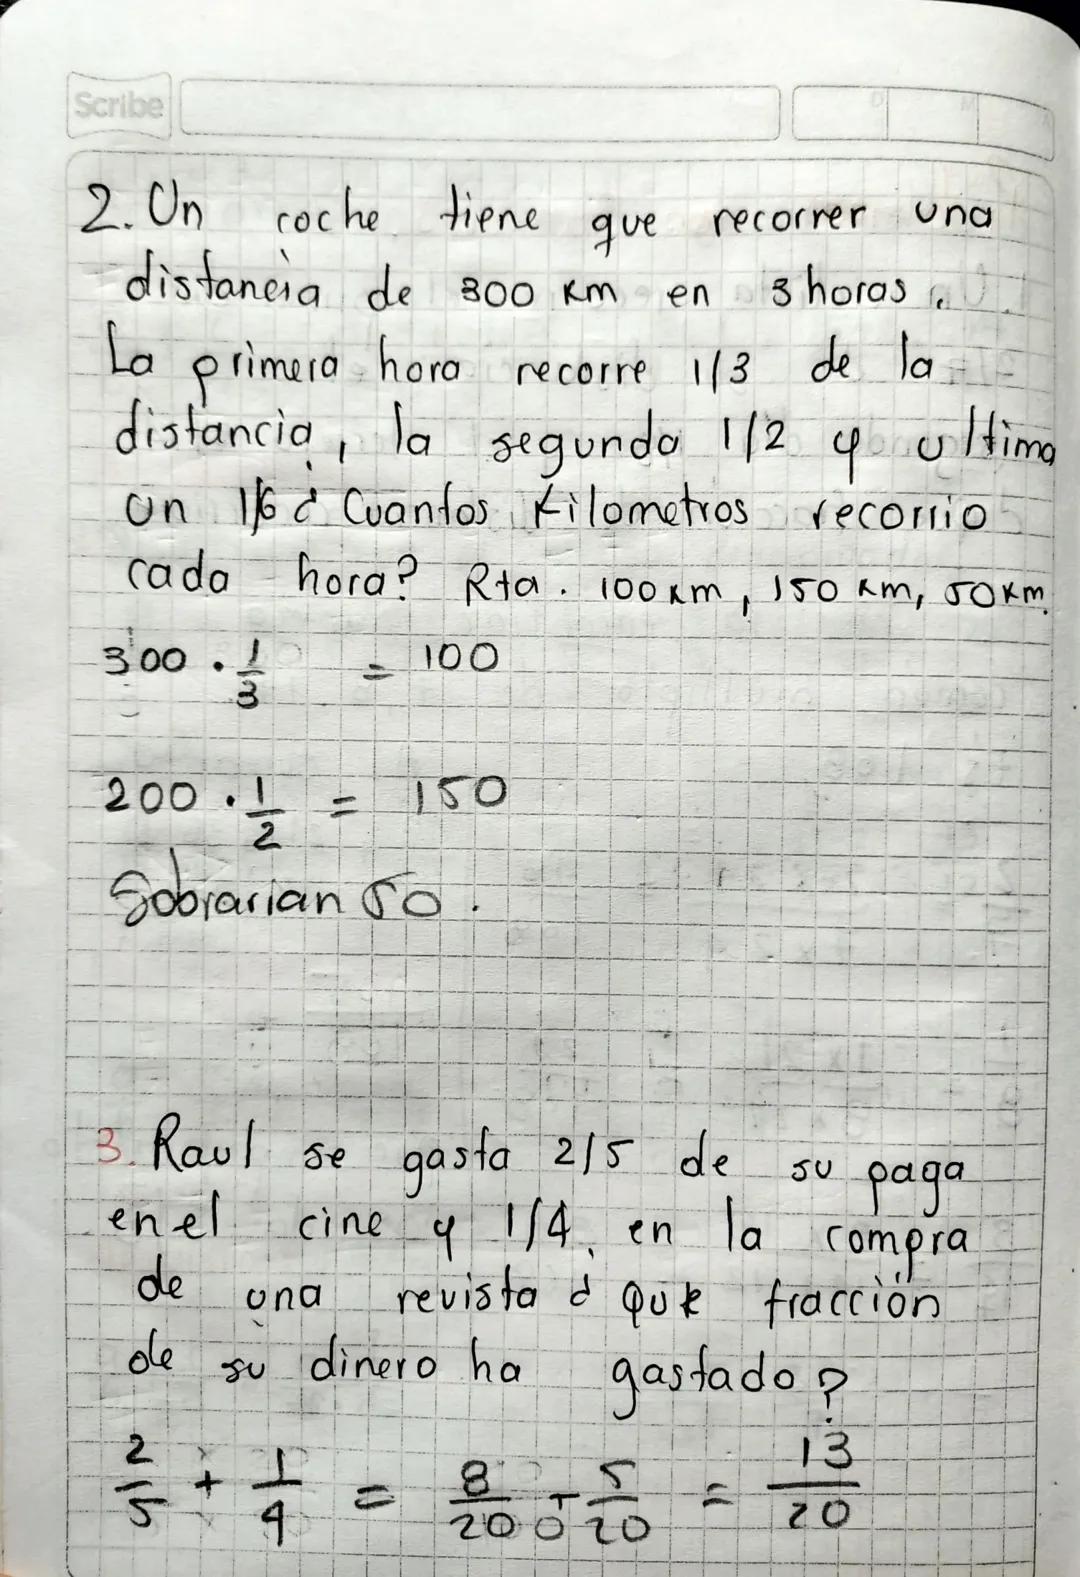 Scribe
D M
2. Un coche tiene que recorrer una
distancia de 300 km en 3 horas.
La primera hora recorre 1/3 de la
distancia, la segunda 1/2 y ultima
un 1/6 ¿ Cuantos Kilometros recorrio
cada hora? Rta. 100 km, 150 km, 50 km.
300 · 1/3 = 100
200 · 1/2 = 150
Sobrarian 50.
3. Raul se gasta 2/5 de su paga
en el cine y 1/4, en la compra
de una revista ¿ Que fracción
de su dinero ha gastado?
2/5 + 1/4 = 8/20 + 5/20 = 13/20